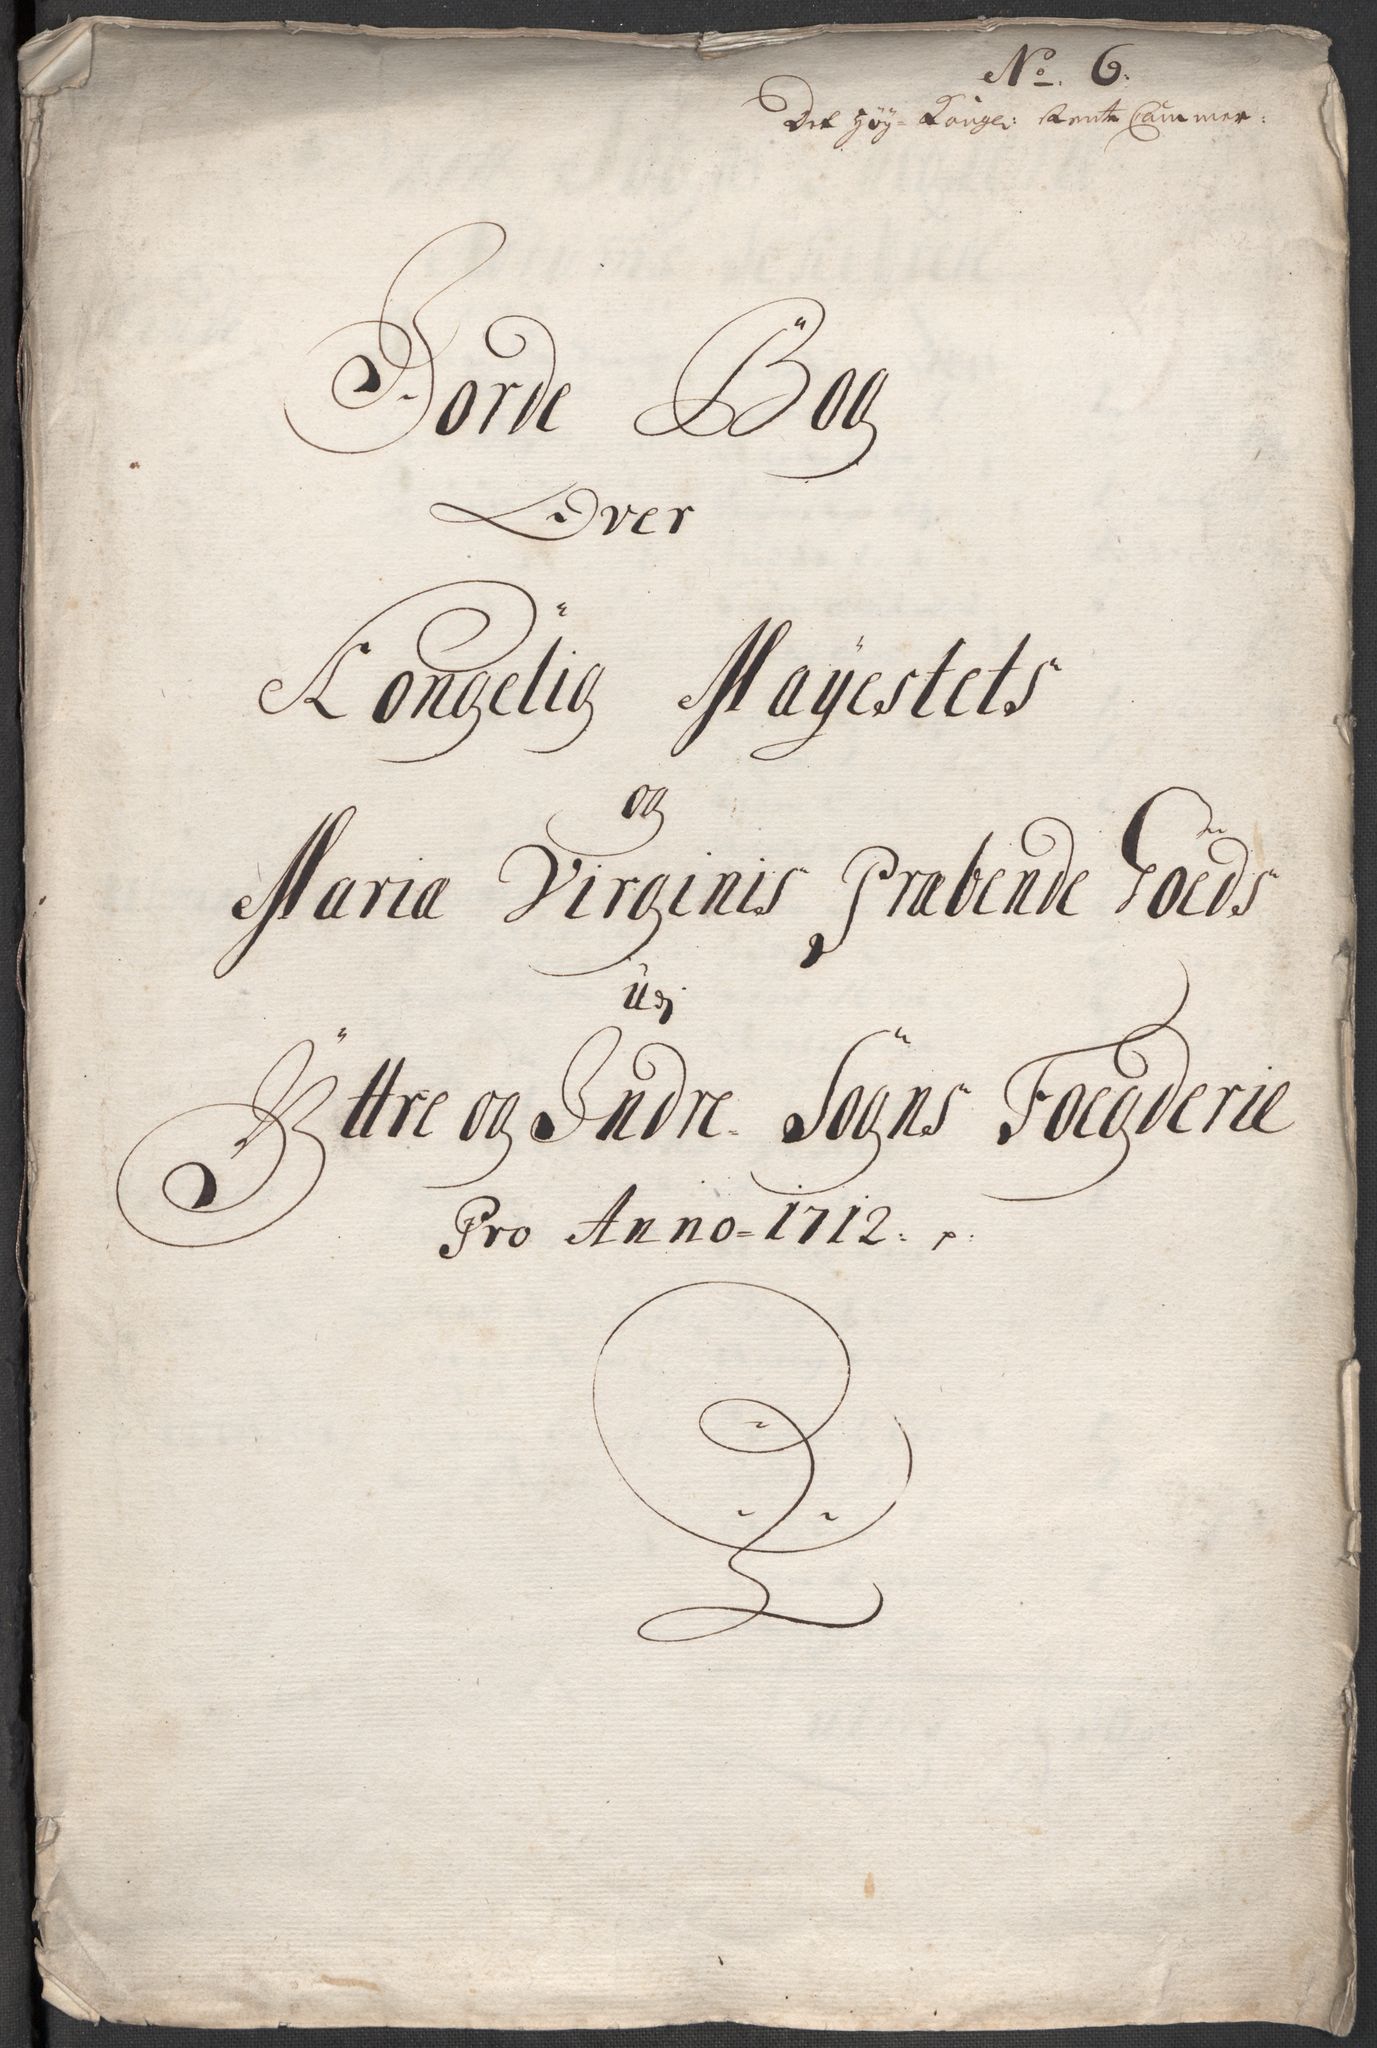 No. 6.
Det Höy- Kongel: Rente Cammer:
Jorde Bog
Over
Kongelig Mayestets
og
Mariæ Virginis Præbende Goeds
Udj
Yttre og Indre Sogns Foegderie
Pro Anno-1712: p: